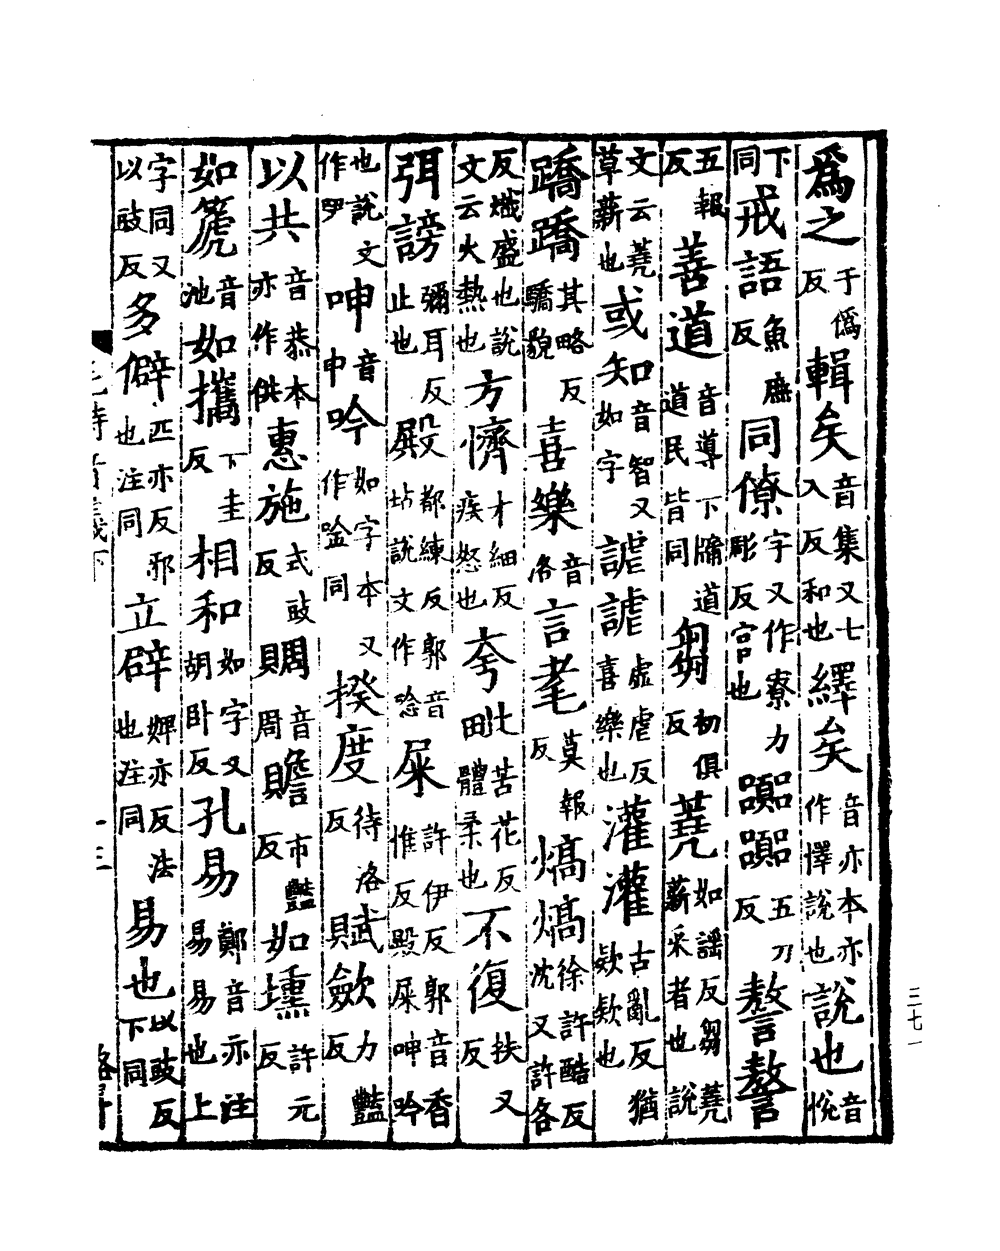 爲之于僞反輯矣音集又七入反和也繹矣音亦本亦作懌說也說也音悅
下同戒語魚庶反同僚字又作寮力彫反官也嚻嚻五刀反謷謷
五報反善道音導下牖道道民皆同芻初俱反蕘如謠反芻蕘薪采者也說
文云蕘草薪也或知音智又如字謔謔虛虐反喜樂也灌灌古亂反猶欵欵也
蹻蹻其略反驕貌喜樂音洛言耄莫報反熇熇徐許酷反沈又許各
反熾盛也說文云火熱也方懠才細反疾怒也夸毗苦花反體柔也不復扶又反
弭謗彌耳反止也殿都練反郭音坫說文作唸屎許伊反郭音香惟反殿屎呻吟
也說文作吚呻音申吟如字本又作唫同揆度待洛反賦斂力豔反
以共音恭本亦作供惠施式豉反賙音周贍市豔反如壎許元反
如篪音池如攜下圭反相和如字又胡卧反孔易鄭音亦注易易也上
字同又以豉反多僻匹亦反邪也注同立辟婢亦反法也注同易也以豉反下同
毛詩音義下
三七一